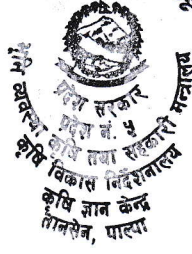 प्रदेश सरकार
प्रदेश नं. ५
भूमि व्यवस्था कृषि तथा सहकारी मन्त्रालय
कृषि विकास निर्देशनालय
कृषि ज्ञान केन्द्र
तानसेन, पाल्पा